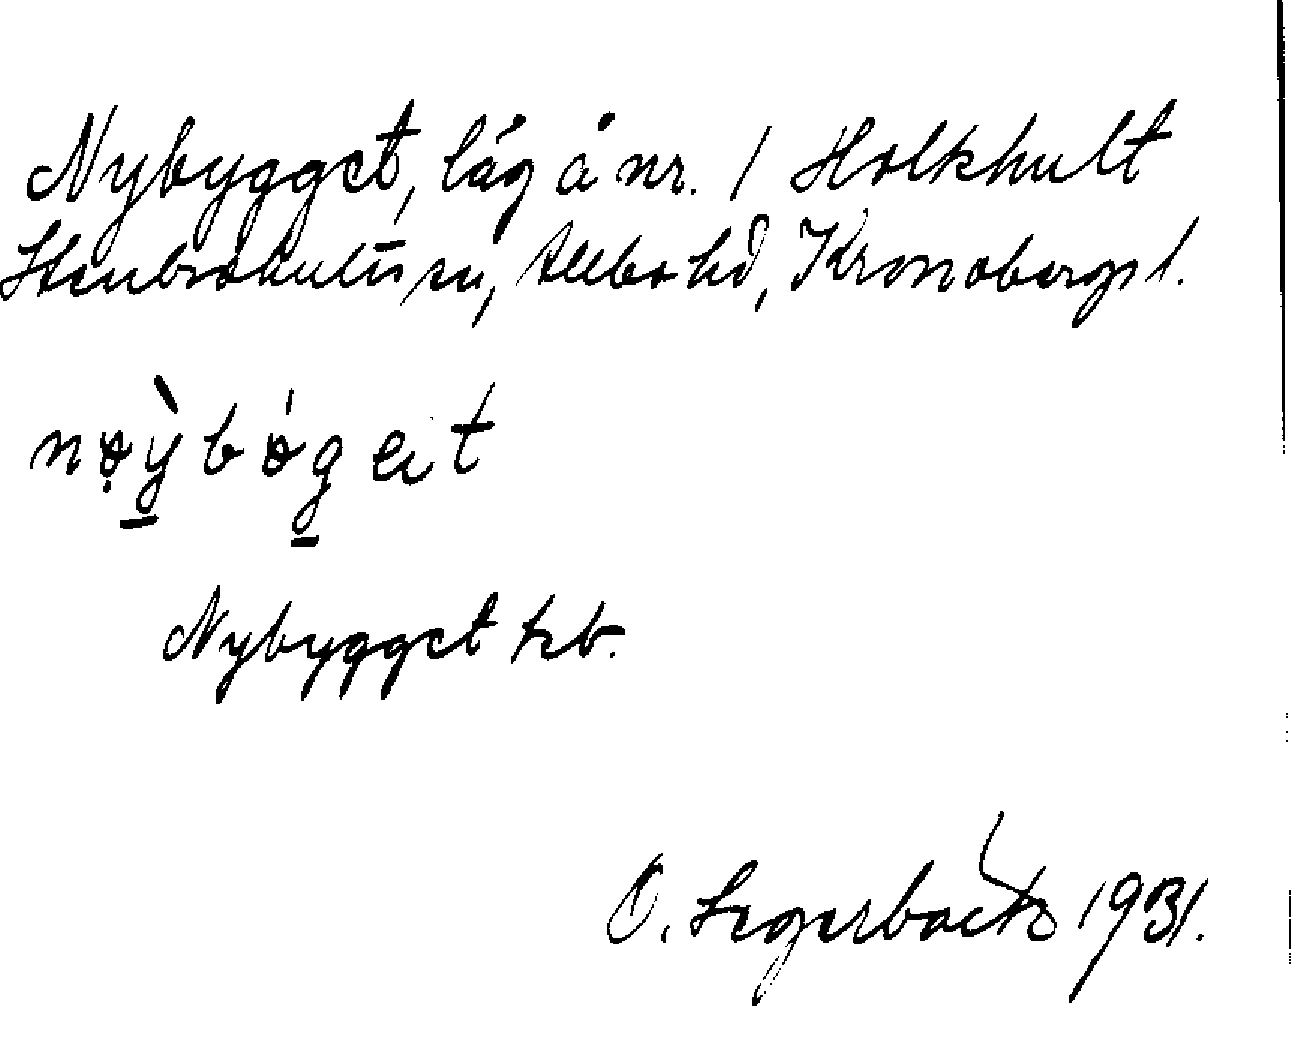 Nybygget, låg å nr. 1 Holkhult
Stenbrohults sn, Allbo hd, Kronobergs l.
nø̣ỳbǿgeit
Nybygget kb.
O. Segerbäck 1931.